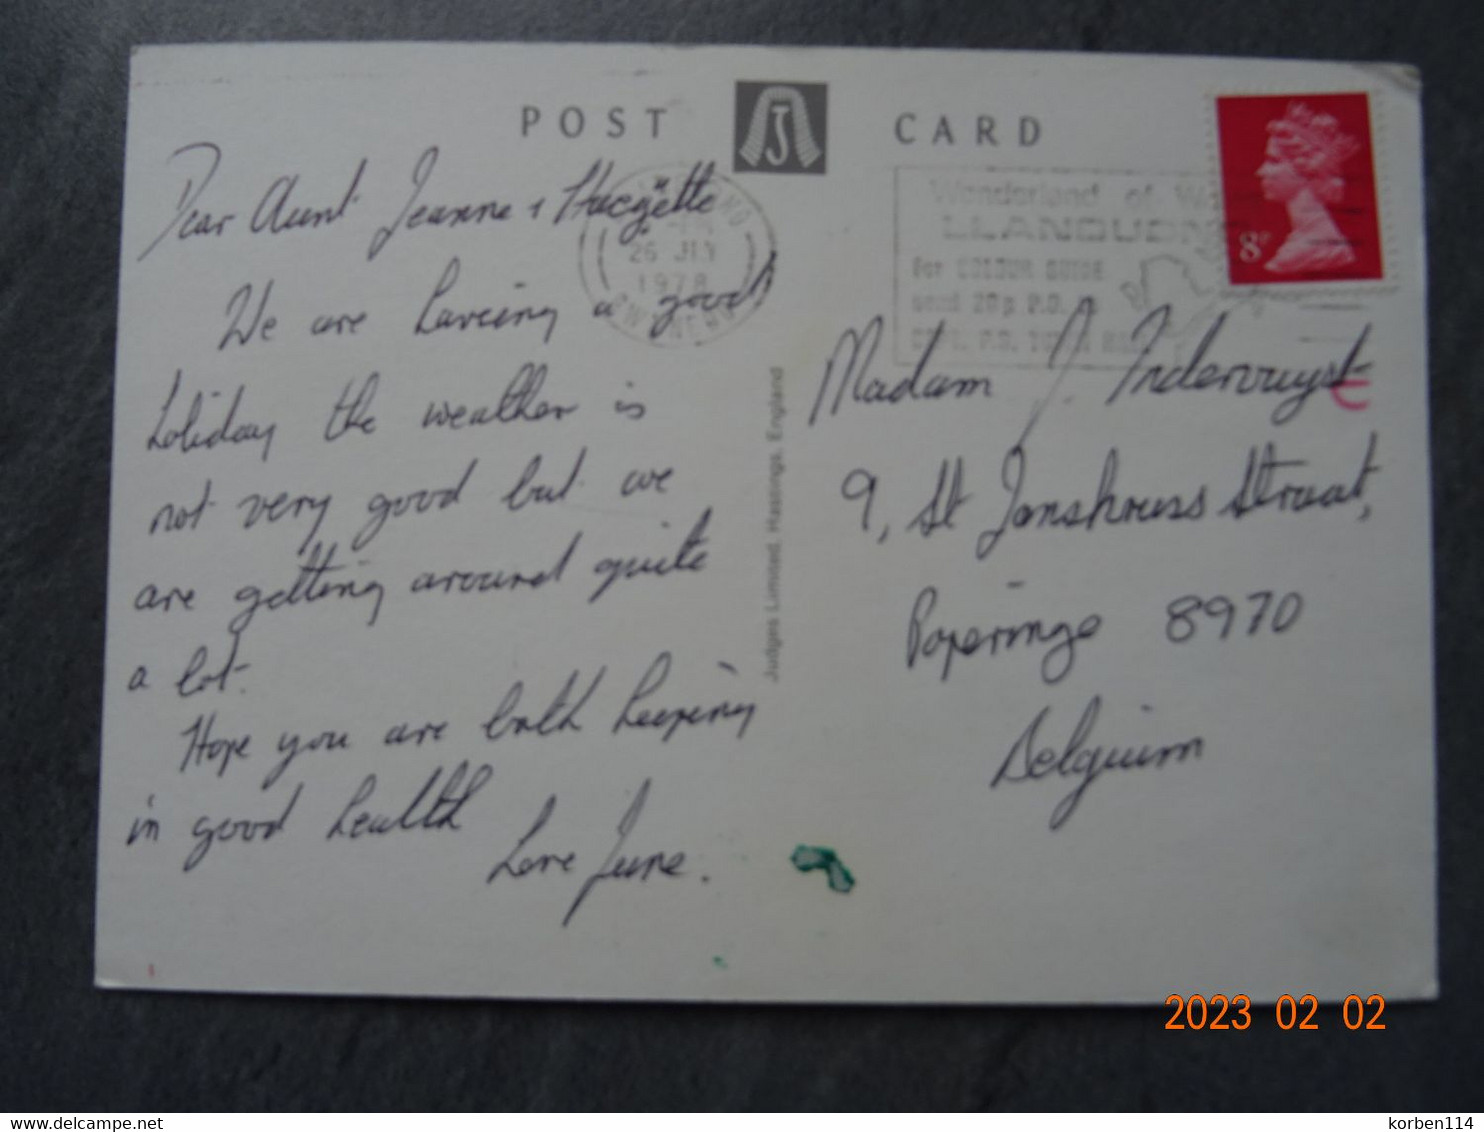 POST CARD
Dear Aunt Jeanne + Hugëtte
We are having a good
holiday the weather is
not very good but we
are getting around quite
a lot.
Hope you are both keeping
in good health
Love June.
Judges Limited, Hastings, England
26 JLY
1978
Wonderland of
LLANDUDNO
for COLOUR GUIDE
send 20p P.O.
TOWN HALL
8P
Madam J. Indervuyst
9, St Janshruss Straat,
Poperinge 8970
Belguim
2023 02 02
delcampe.net
korben114